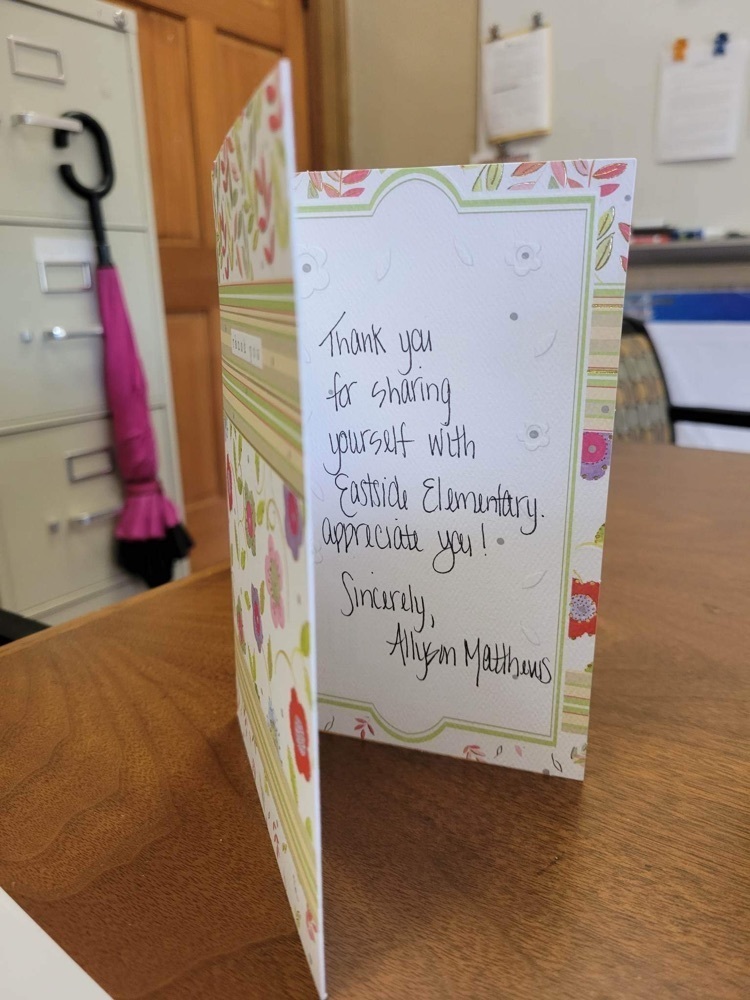 thank you
Thank you
for sharing
yourself with
Eastside Elementary.
appreciate you!
Sincerely,
Allyson Matthews